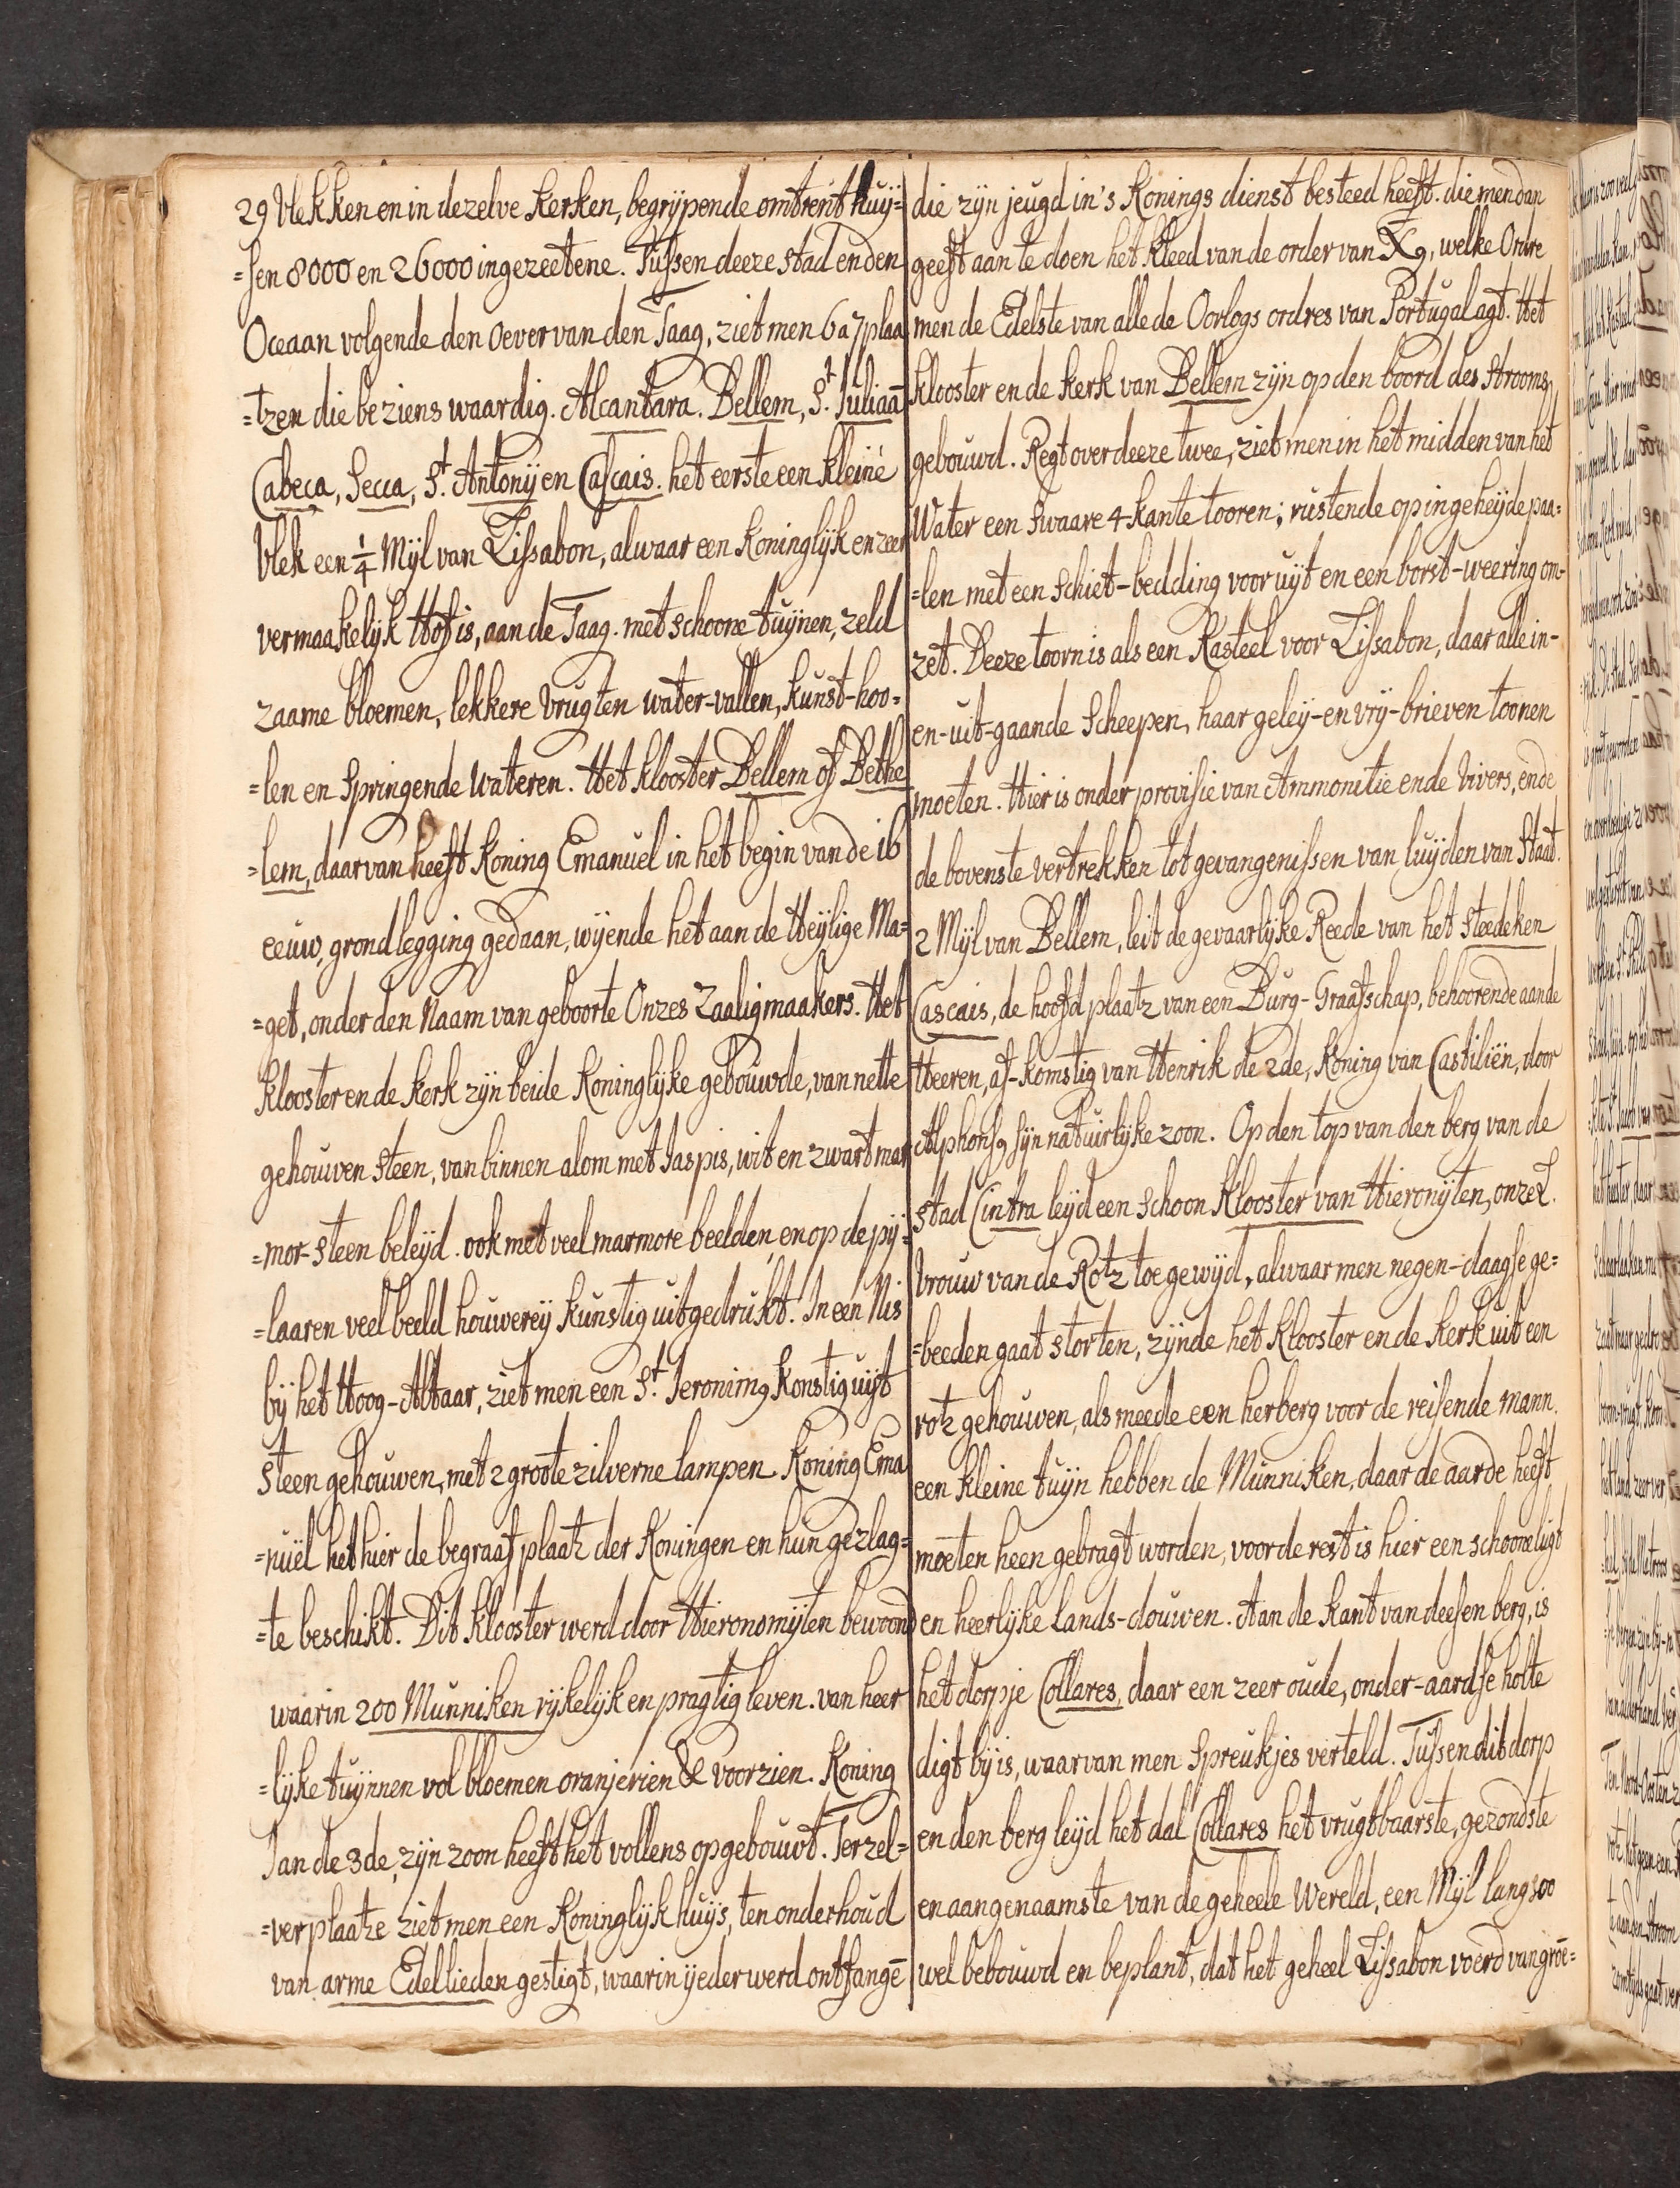 29 Vlekken en in dezelve Kerken, begrypende omtrent huÿ=
=sen 8000 en 26000 ingezeetene. Tussen deeze stad en den
Oceaan volgende den Oever van den Taag, ziet men 6 a 7 plaa
=tzen die beziens waardig. Alcantara. Bellem, St. Juliaā
Cabeca, Secca, St. Antonÿ en Cascais. het eerste een kleine
Vlek een 1/4 Mÿl van Lissabon, alwaar een Koninglÿk en zeer
vermaakelÿk Hof is, aan de Taag. met schoone tuÿnen, zeld
zaame bloemen, lekkere vrugten water-vallen, kunst-hoo=
=len en Springende Wateren. Het klooster Bellem of Bethe
=lem, daar van heeft Koning Emanuel in het begin van de 16
eeuw, grondlegging gedaan, wÿende het aan de Heÿlige Ma=
=get, onder den Naam van geboorte Onzes Zaaligmaakers. Het
klooster en de kerk zÿn beide Koninglÿke gebouwde, van nette
gehouwen steen, van binnen alom met Jaspis, wit en zwart mar
=mor-steen beleÿd. ook met veel marmore beelden, en op de pÿ=
=laaren veel beeld houwereÿ kunstig uitgedrukt. In een Nis
bÿ het Hoog-Altaar, ziet men een St. Jeronimq konstig uÿt
steen gehouwen, met 2 groote zilverne lampen. Koning Ema
=nuël het hier de begraaf plaatz der Koningen en hun gezlag=
=te beschikt. Dit klooster werd door Hieronomÿten bewoond
waar in 200 Munniken rÿkelÿk en pragtig leven. van heer
=lÿke tuÿnnen vol bloemen oranjerien & voorzien. Koning
Jan de 3de, zÿn zoon heeft het vollens opgebouwt. Ter zel=
=ver plaatze ziet men een Koninglÿk huÿs, ten onderhoud
van arme Edellieden gestigt, waar in ÿeder werd ontfangē
die zÿn jeugd in 's Konings dienst besteed heeft. die men dan
geeft aan te doen het kleed van de order van Xq, welke Ordre
men de Edelste van alle de Oorlogs ordres van Portugal agt. Het
klooster en de kerk van Bellem zÿn op den boord des Strooms,
gebouwd. Regt over deeze twee, ziet men in het midden van het
Water een swaare 4-kante tooren; rustende op ingeheÿde paa=
=len met een schiet-bedding voor uÿt en een borst-weering om-
zet. Deeze toorn is als een Kasteel voor Lissabon, daar alle in-
en-uit-gaande Scheepen, haar geleÿ-en vrÿ-brieven toonen
moeten. Hier is onder provisie van Ammonitie ende Vivers, ende
de bovenste vertrekken tot gevangenissen van luÿden van Staat.
2 Mÿl van Bellem, leit de gevaarlÿke Reede van het steedeken
Cascais, de hoofd plaatz van een Burg-Graafschap, behoorende aan de
Heeren, af-komstig van Henrik de 2de, Koning van Castiliën, door
Alphonsq sÿn natuirlÿke zoon. Op den top van den berg van de
stad Cintra leÿd een schoon Klooster van Hieronÿten, onze L.
Vrouw van de Rotz toegewÿd, alwaar men negen-daagse ge=
=beeden gaat storten, zÿnde het klooster en de kerk uit een
rotz gehouwen, als meede een herberg voor de reisende mann.
een kleine tuÿn hebben de Munniken, daar de aarde heeft
moeten heen gebragt worden, voor de rest is hier een schoone ligt
en heerlÿke Lands-douwen. Aan de kant van deesen berg, is
het dorpje Collares, daar een zeer oude, onder-aardse holte
digt bÿ is, waar van men Spreukjes verteld. Tussen dit dorp
en den berg leÿd het dal Collares het vrugtbaarste, gezondste
en aangenaamste van de geheele Wereld, een Mÿl lang zoo
wel bebouwd en beplant, dat het geheel Lissabon voerd van groe=